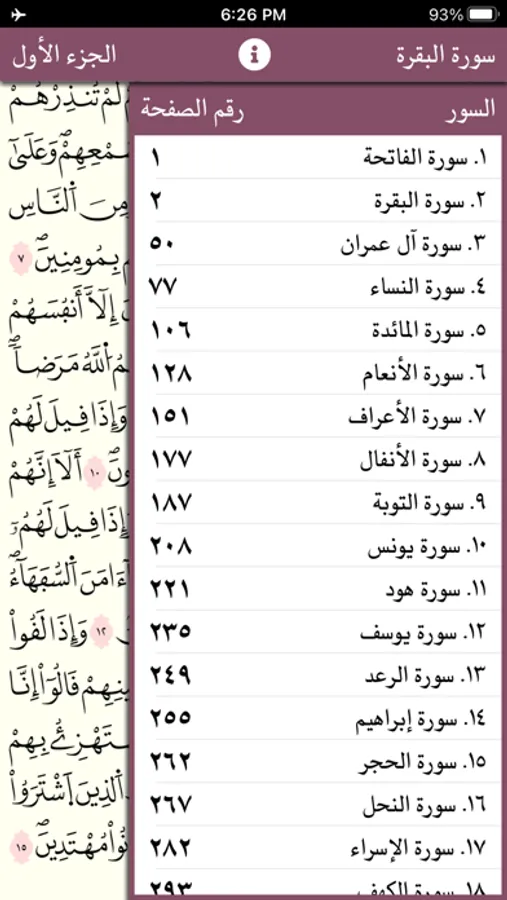 6:26 PM 93%
سورة البقرة الجزء الأول
السور رقم الصفحة
١. سورة الفاتحة ١
٢. سورة البقرة ٢
٣. سورة آل عمران ٥٠
٤. سورة النساء ٧٧
٥. سورة المائدة ١٠٦
٦. سورة الأنعام ١٢٨
٧. سورة الأعراف ١٥١
٨. سورة الأنفال ١٧٧
٩. سورة التوبة ١٨٧
١٠. سورة يونس ٢٠٨
١١. سورة هود ٢٢١
١٢. سورة يوسف ٢٣٥
١٣. سورة الرعد ٢٤٩
١٤. سورة إبراهيم ٢٥٥
١٥. سورة الحجر ٢٦٢
١٦. سورة النحل ٢٦٧
١٧. سورة الإسراء ٢٨٢
١٨. سورة الكهف ٢٩٣
لَمْ تُنذِرْهُمْ
وَعَلَىٰ
مِنَ اَ۬لنَّاسِ
بِمُومِنِينَۖ ٧
إِلَّا أَنفُسَهُمْ
اُ۬للَّهُ مَرَضاٗۖ
وَإِذَا قِيلَ لَهُمْ
١٠ أَلَا إِنَّهُمْ
قِيلَ لَهُمُۥ
اَ۬لسُّفَهَآءُۖ
١٢ وَإِذَا لَقُواْ
قَالُوٓاْ إِنَّا
بِهِمْ
اَ۬لذِينَ اَ۪شْتَرَوُاْ
مُهْتَدِينَۖ ١٥